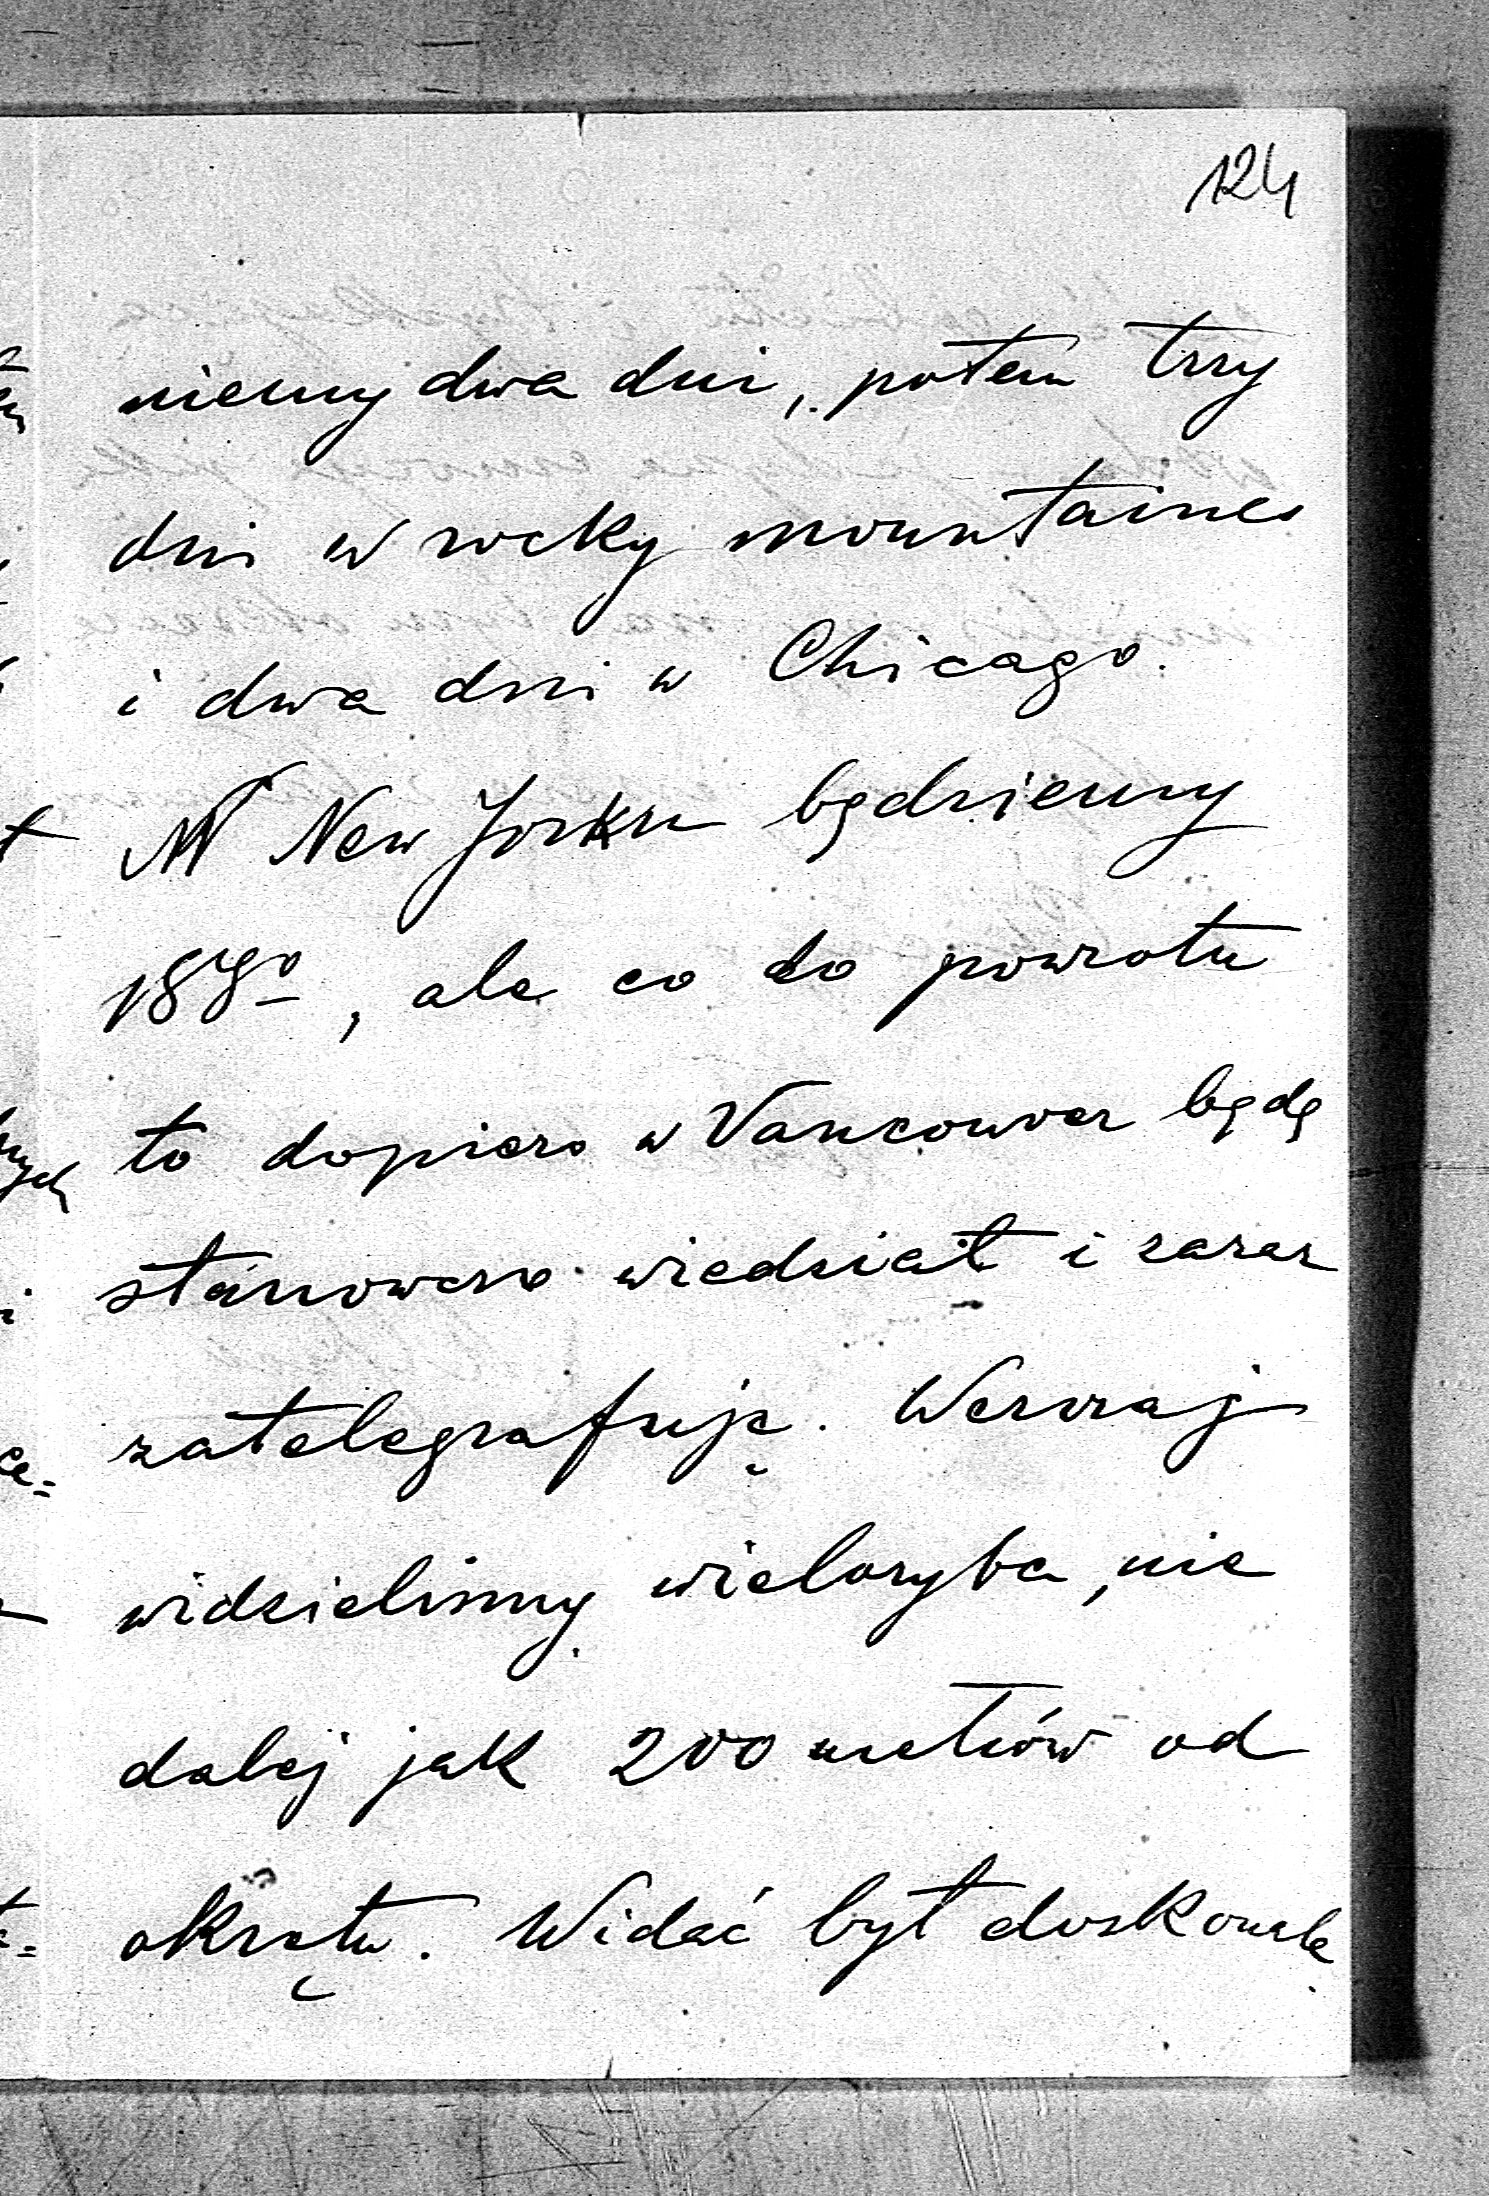 124
niemy dwa dni, potem trzy
dni w rocky mountaines
i dwa dni w Chicago.
W New Jorku będziemy
187º, ale co do powrotu
to dopiero w Vancouver będę
stanowczo wiedział i zaraz
zatelegrafuję. Wczoraj
widzielismy wieloryba, nie
dalej jak 200 metrów od
okrętu. Widać był doskonale